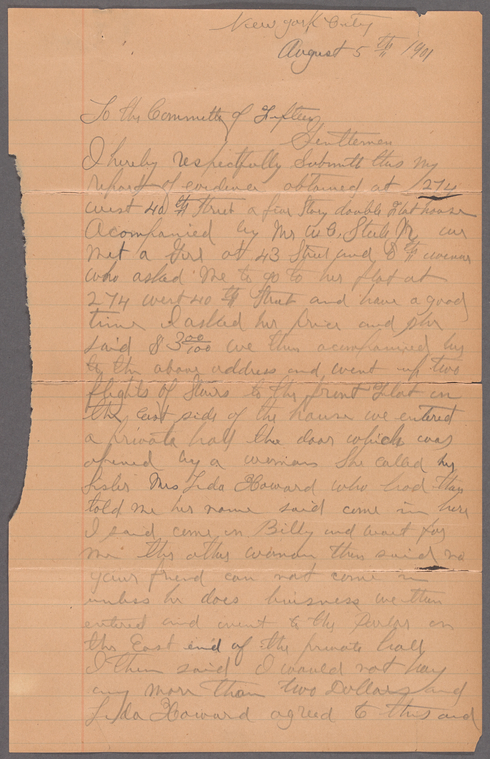 New York City
August 5th 1901
To the Committee of Fifteen
Gentlemen
I hereby respectfully Submitt this my
report of evidence obtained at 274
west 40th Street a five Story double Flat house
Acompanied by Mr W. C. Steele Jr we
met a Girl at 43 Street and 8th avenue
who asked me to go to her flat at
274 west 40th Street and have a good
time I asked her price and she
said $3 00/100 we then acompanied her
to the above address and went up two
flights of Stairs to the front Flat on
the East side of the house we entered
a private hall the door which was
opened by a woman She called her
Sister Mrs Lida Howard who had then
told me her name said come in here
I said come in Billy and wait for
me the other woman then said no
your friend can not come in
unless he does buisness we then
entered and went to the Parlor on
the East end of the private hall
I then said I would not pay
any more than two Dollars and
Lida Howard agreed to this and